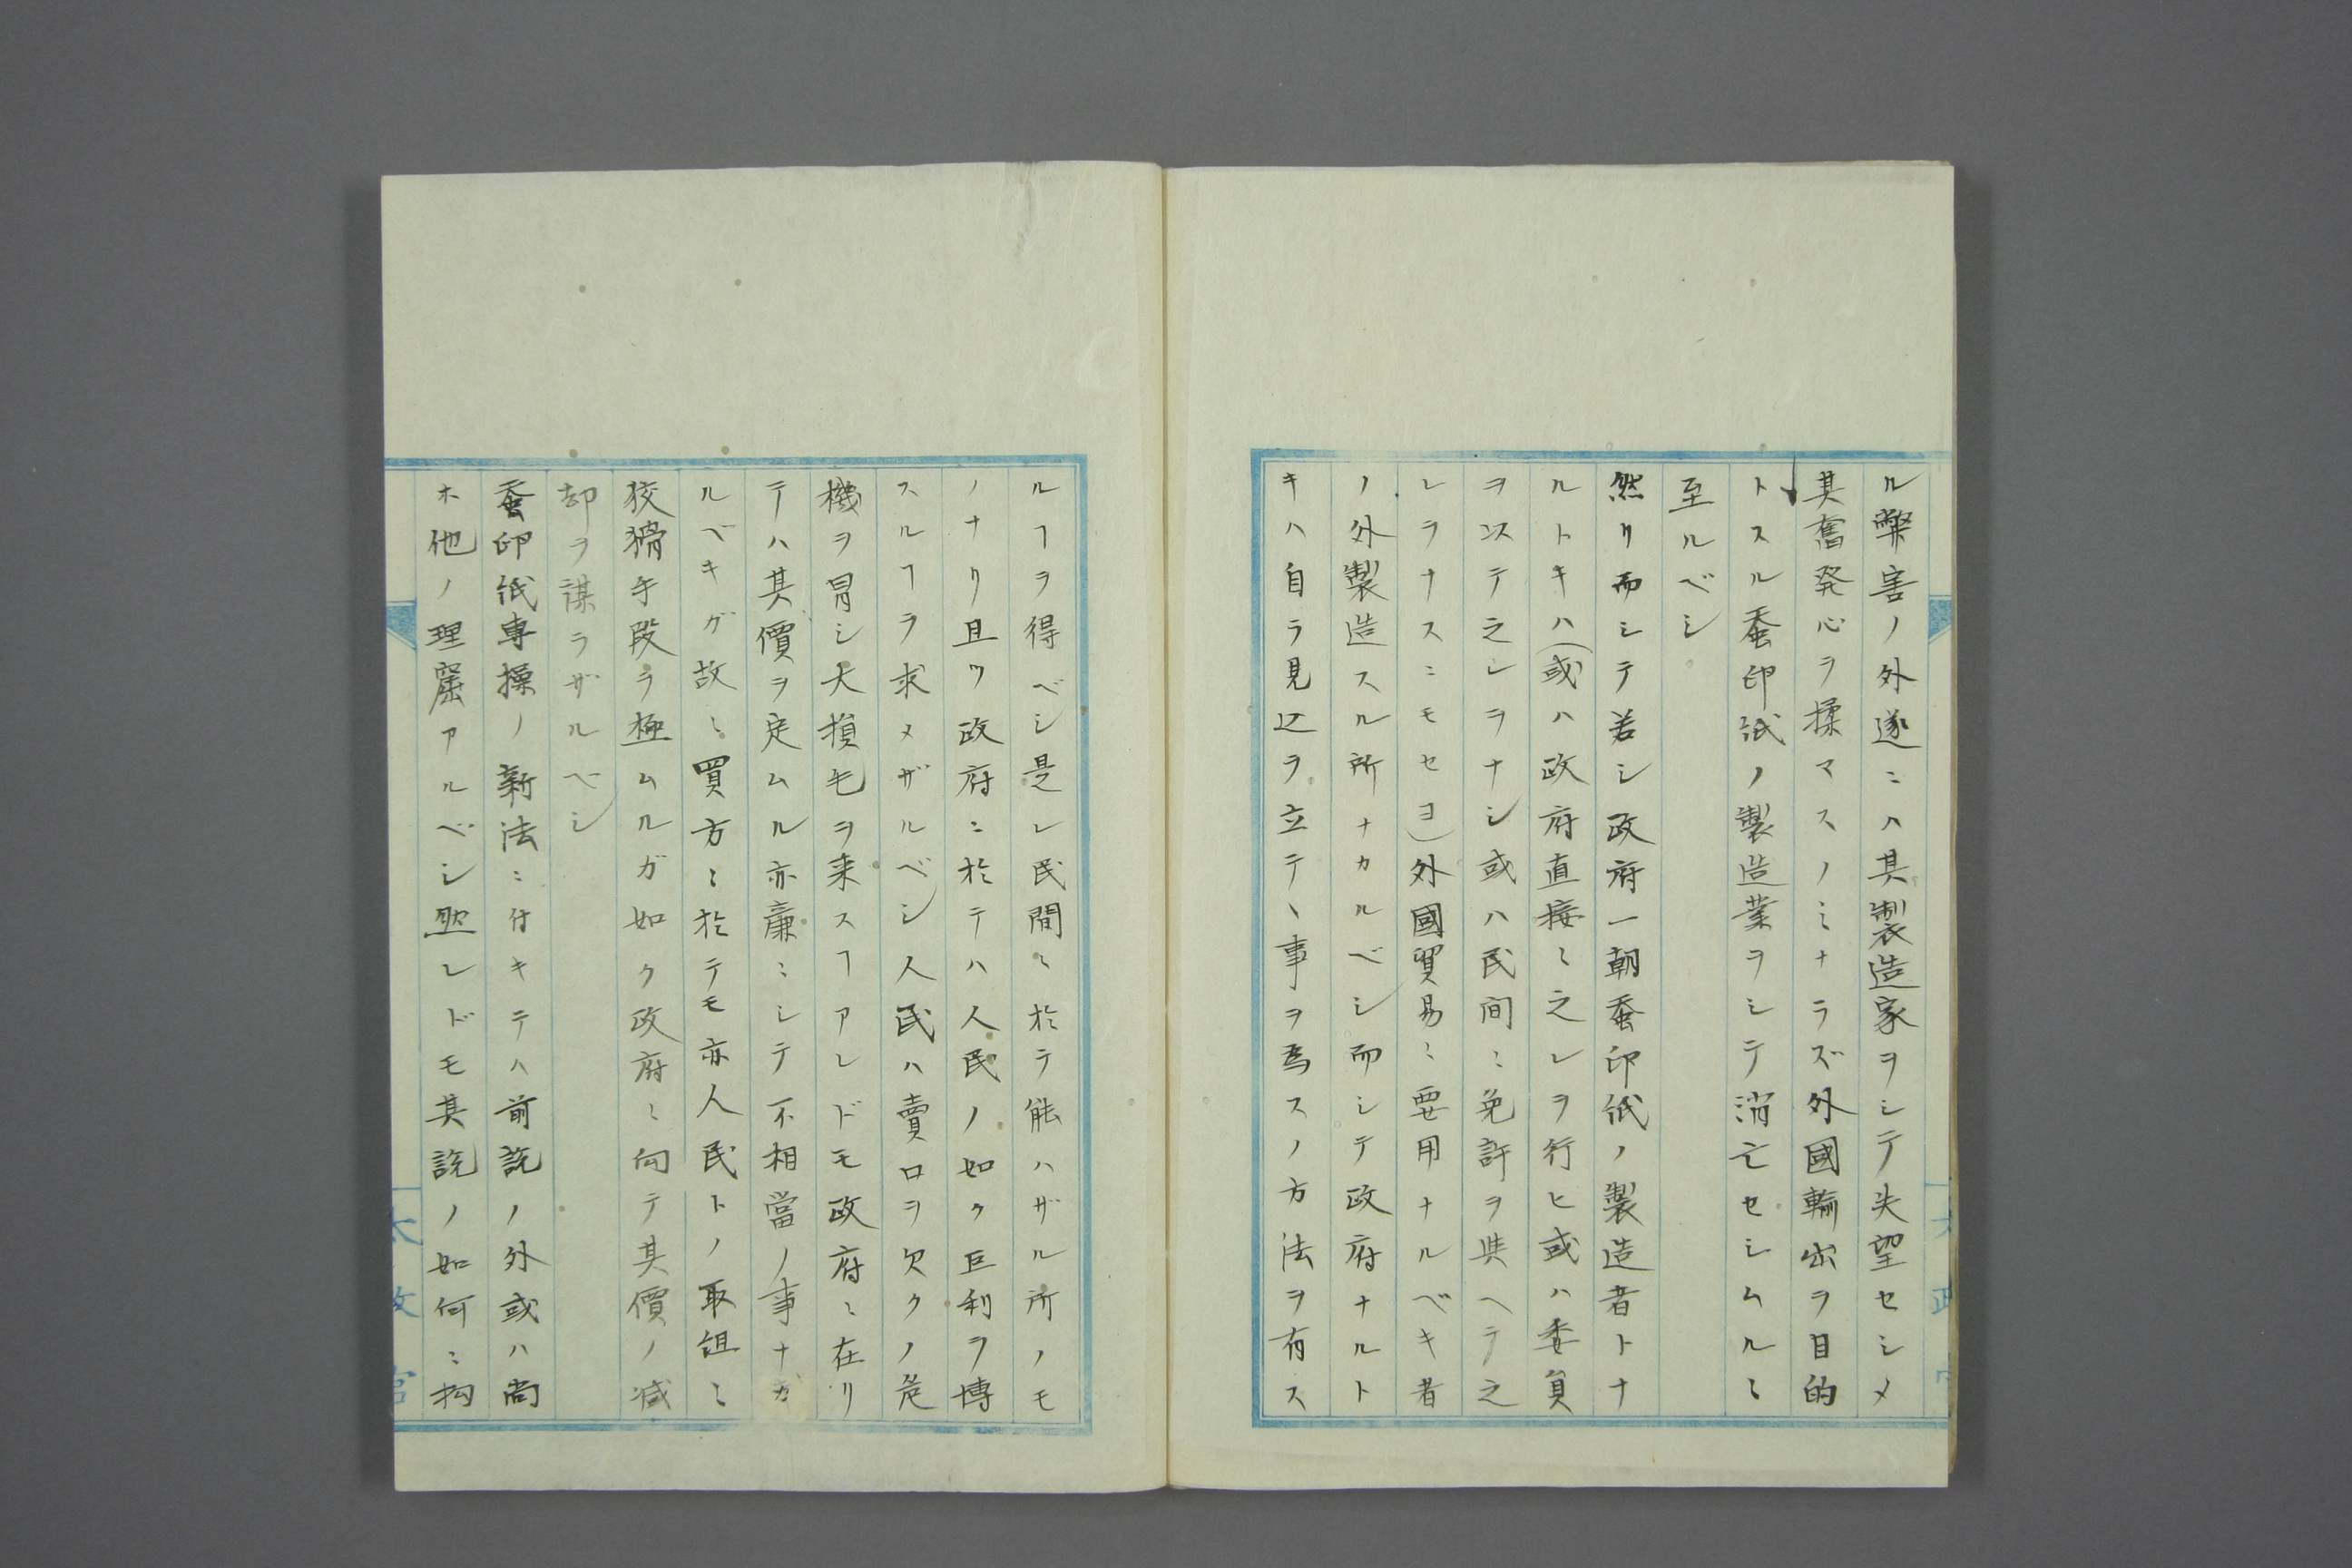 ル弊害ノ外遂ニハ其製造家ヲシテ失望セシメ
其奮発心ヲ揉マスノミナラズ外國輸出ヲ目的
トスル蚕印紙ノ製造業ヲシテ消亡セシムルニ
至ルベシ
然リ而シテ若シ政府一朝蚕印紙ノ製造者トナ
ルトキハ(或ハ政府直接ニ之レヲ行ヒ或ハ委員
ヲ以テ之レヲナシ或ハ民间ニ免許ヲ與ヘテ之
レヲナスニモセヨ)外國貿易ニ要用ナルベキ者
ノ外製造スル所ナカルベシ而シテ政府ナルト
キハ自ラ見込ヲ立テヽ事ヲ為スノ方法ヲ有ス
ルヿヲ得ベシ是レ民間ニ於テ能ハザル所ノモ
ノナリ且ツ政府ニ於テハ人民ノ如ク巨利ヲ博
スルヿヲ求メザルベシ人民ハ賣口ヲ欠クノ危
機ヲ冒シ大損毛ヲ来スヿアレドモ政府ニ在リ
テハ其價ヲ定ムル亦廉ニシテ不相當ノ事ナカ
ルベキガ故ニ買方ニ於テモ亦人民トノ取組ニ
狡猾手段ヲ極ムルガ如ク政府ニ向テ其價ノ減
却ヲ謀ラザルベシ
蚕印紙専操ノ新法ニ付キテハ前説ノ外或ハ尚
ホ他ノ理窟アルベシ然レドモ其説ノ如何ニ拘
太政官
太政官